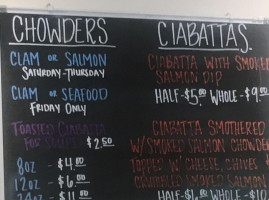 CHOWDERS
CLAM OR SALMON
SATURDAY-THURSDAY
CLAM OR SEAFOOD
FRIDAY ONLY
TOASTED CIABATTA
FOR $2.50
8OZ - $4.00
12OZ - $6.00
CIABATTAS
CIABATTA WITH SMOKED
SALMON DIP
HALF-$5.00 WHOLE-$9.
CIABATTA SMOTHERED
W/SMOKED SALMON CHOWDER
TOPPED W/ CHEESE, CHIVES
CRUMBLED SMOKED SALMON
WHOLE-$10